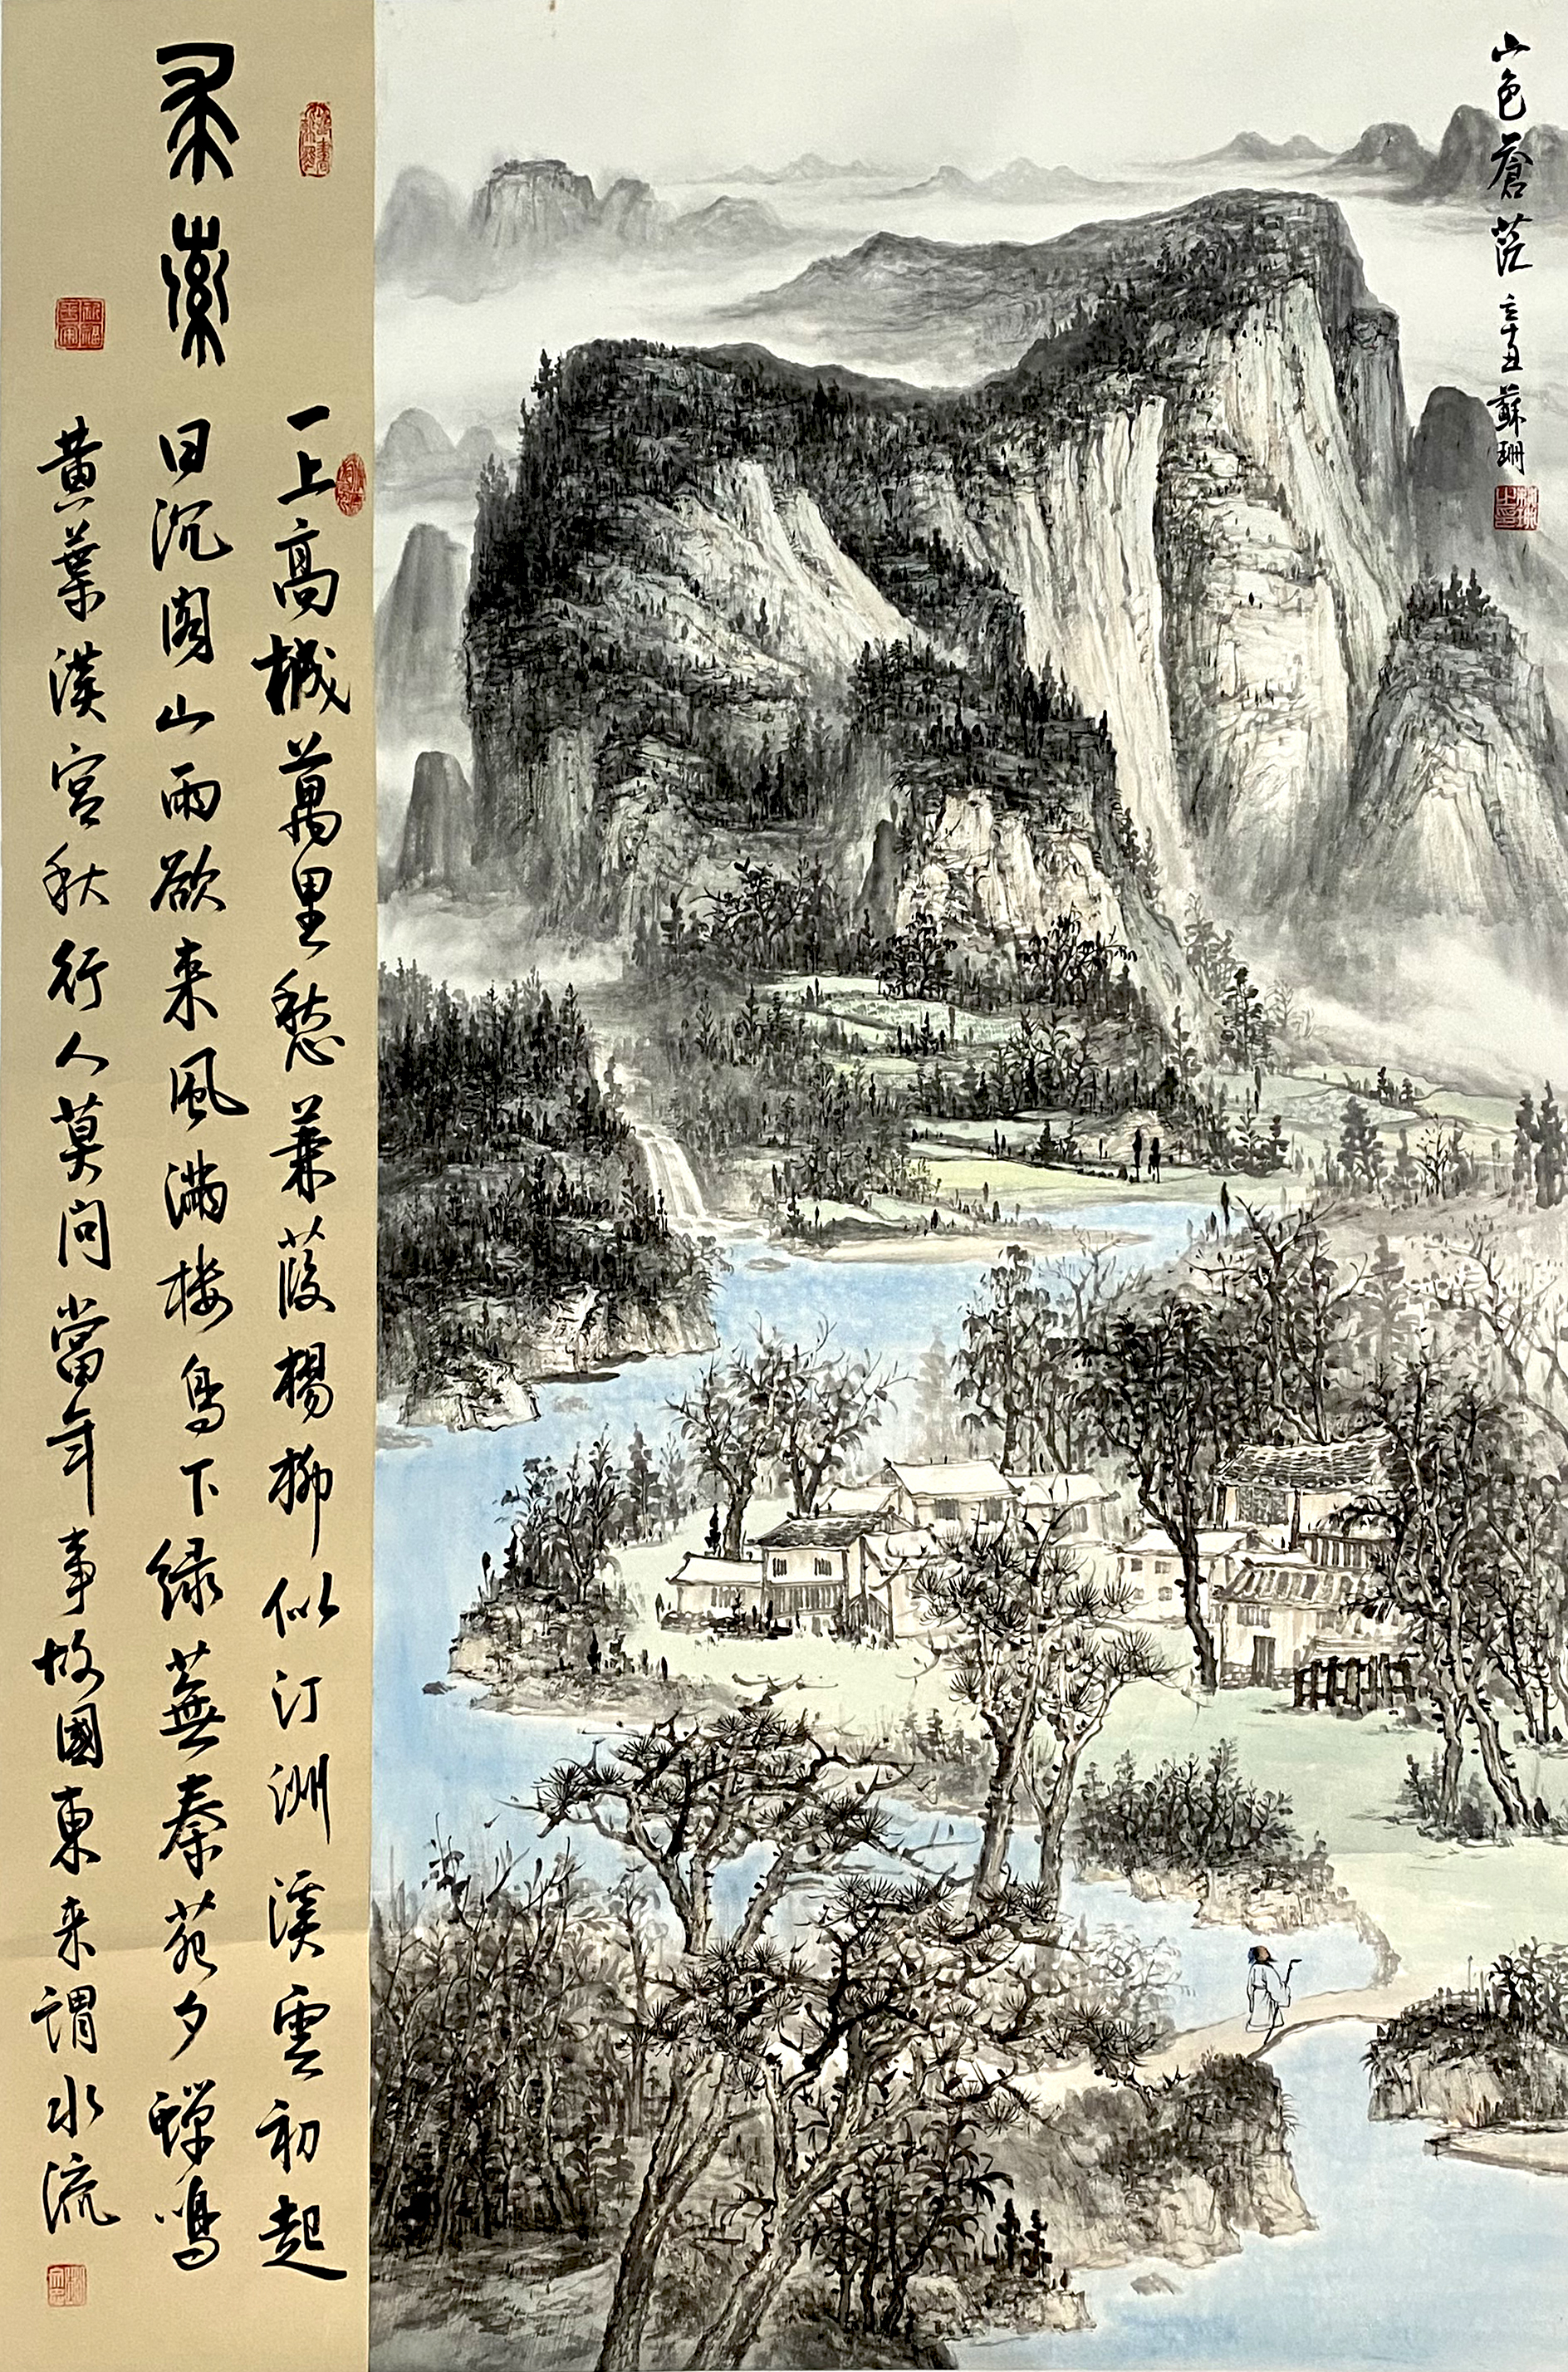 山色蒼茫 辛丑 蘇珊
求索
一上高城萬里愁蒹葭楊柳似汀洲溪雲初起
日沉阁山雨欲来風滿楼鳥下绿蕪秦苑夕蟬鳴
黄葉漢宫秋行人莫问當年事故國東来謂水流